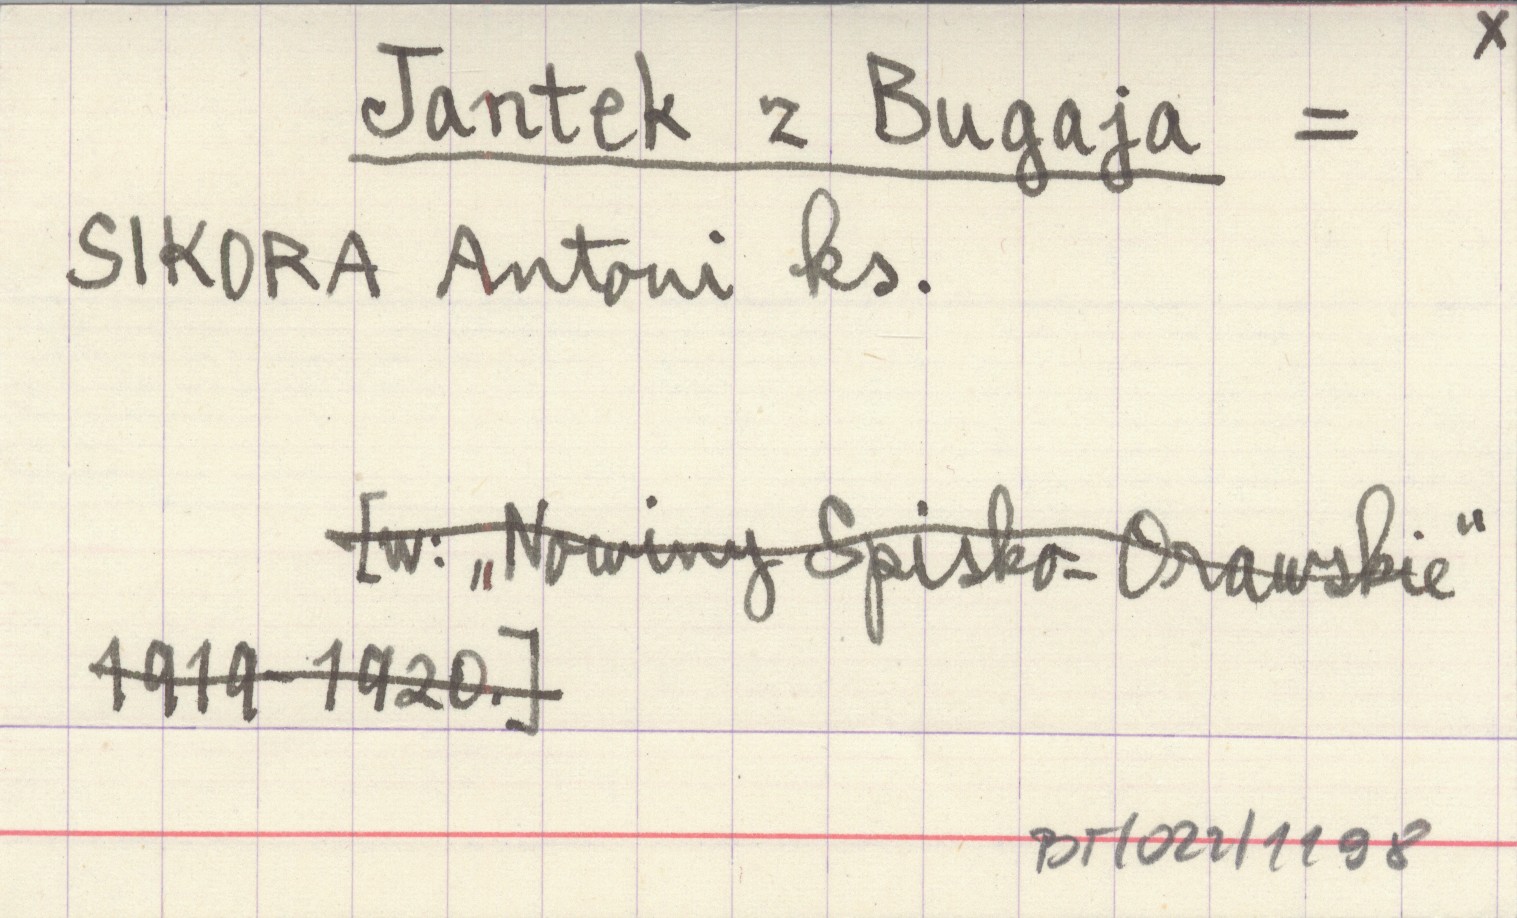 x
Jantek z Bugaja =
SIKORA Antoni ks.
[w: „Nowiny Spisko-Orawskie"
1919-1920.]
BT/022/1198